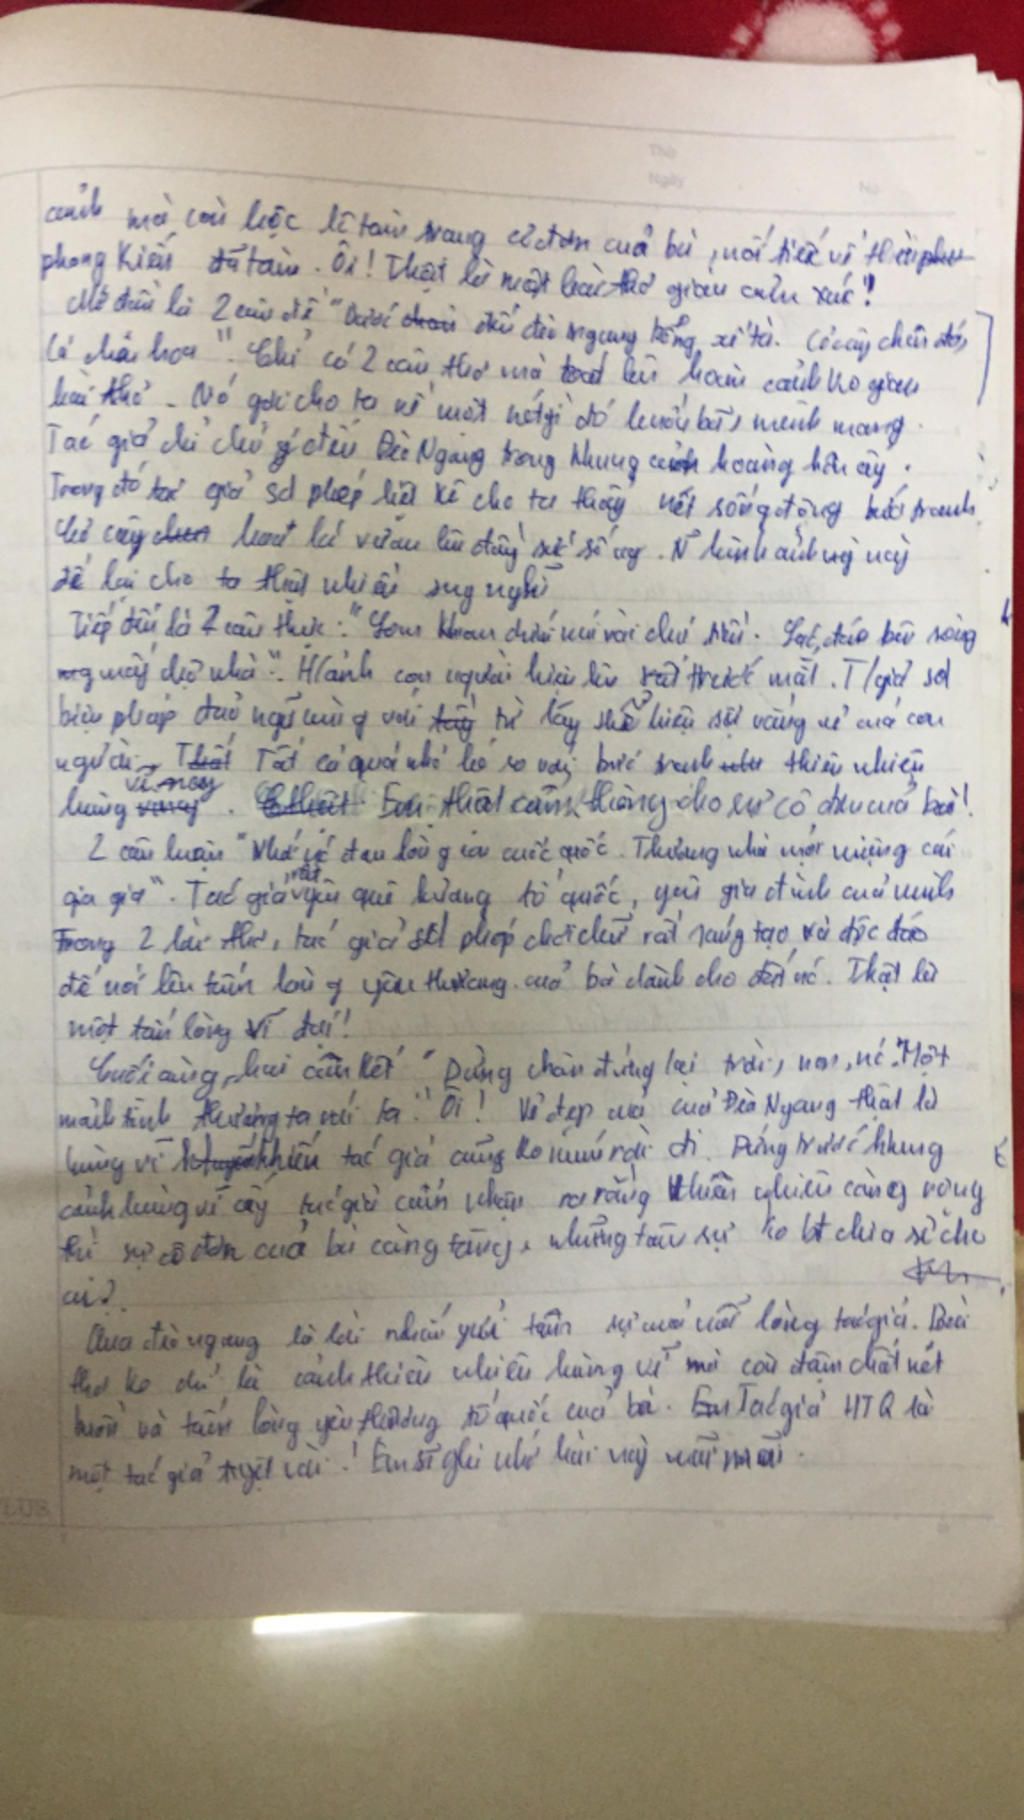 cảnh mà còn bộc lộ tâm trạng cô đơn của bà, nối tiếc về thời
phong kiến đã tàn. Ôi! Thật là một bài thơ giàu cảm xúc!
Mở đầu là 2 câu đề "Bước đến đèo ngang bóng xế tà. Cỏ cây chen đá,
lá chen hoa". Chỉ có 2 câu thơ mà lên hoàn cảnh ko gian
bài thơ. Nó gợi cho ta về một nét gì đó buồn bã, mênh mang.
Tác giả chỉ chú ý đến Đèo Ngang trong khung cảnh hoàng hôn ấy.
Trong đó tác giả sd phép liệt kê cho ta thấy nét sống động bức tranh
cỏ cây hoa lá vươn lên đầy sức sống. N hình ảnh này
để lại cho ta thật nhiều suy nghĩ
Tiếp đến là 2 câu thực: "Lom khom dưới núi vài chú tiều. Lác đác bên sông
mấy nhà". H/ảnh con người hiện lên rất trước mắt. T/giả sd
biện pháp đảo ngữ cùng với từ láy thể hiện sự vắng vẻ của con
người. Tất cả quá nhỏ bé so với bức tranh thiên nhiên
hùng vĩ này. Em thật cảm thông cho sự cô đơn của bà!
2 câu luận "Nhớ nước đau lòng con cuốc quốc. Thương nhà mỏi miệng cái
gia gia". Tác giả rất yêu quê hương tổ quốc, yêu gia đình của mình
Trong 2 thơ, tác giả sd phép chơi chữ rất sáng tạo và độc đáo
để nói lên tấm lòng yêu thương của bà dành cho đất nc. Thật là
một tấm lòng vĩ đại!
Cuối cùng, hai câu kết "Dừng chân đứng lại trời, non, nc. Một
mảnh tình ta với ta". Ôi! Vẻ đẹp của Đèo Ngang thật là
hùng vĩ khiến tác giả cũng ko muốn rời đi. Đứng trước khung
cảnh hùng vĩ ấy tác giả cảm nhận ra rằng thiên nhiên càng rộng
thì sự cô đơn của bà càng tăng, những tâm sự ko bt chia sẻ cho
ai?
Qua đèo ngang là lời nhắn gửi tâm sự của nỗi lòng tác giả. Bài
thơ ko chỉ là cảnh thiên nhiên hùng vĩ mà còn đậm chất nét
buồn và tấm lòng yêu thương tổ quốc của bà. Tác giả HTQ là
một tác giả tuyệt vời! Em sẽ ghi nhớ bài này mãi mãi.